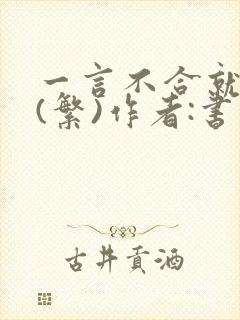 一言不合就
(繁)作者:書
古井貢酒